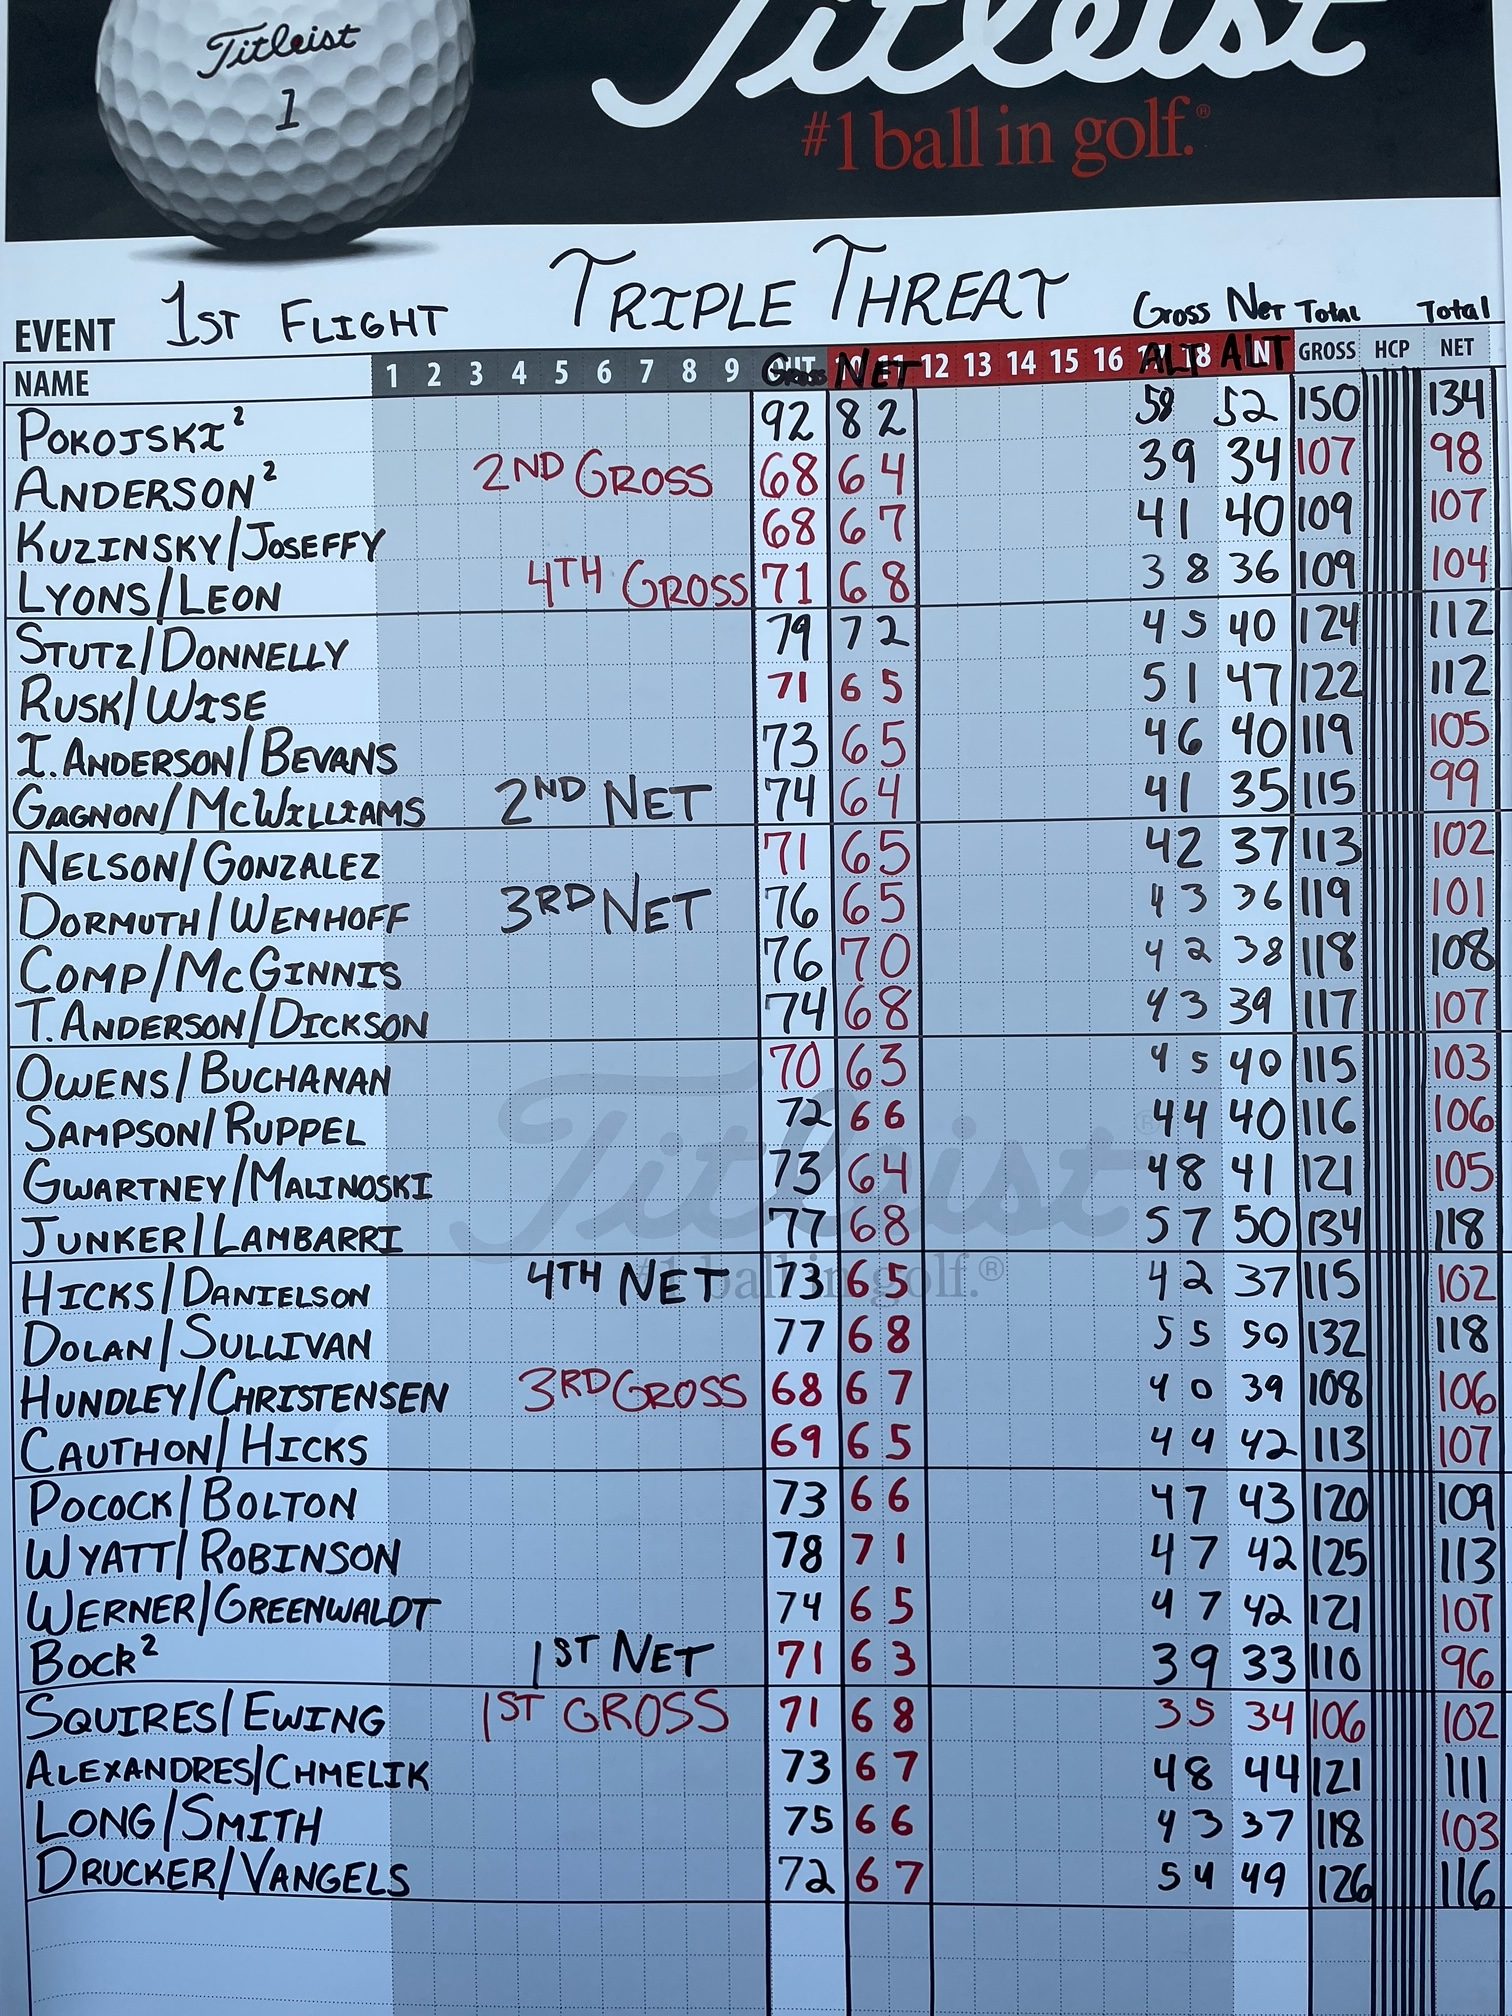 Titleist
1
Titleist
#1 ball in golf.®
EVENT 1ST FLIGHT TRIPLE THREAT Gross Net Total Total
NAME 1 2 3 4 5 6 7 8 9 OUT Gross 10 11 NET 12 13 14 15 16 17 18 ALT IN ALT GROSS HCP NET
POKOJSKI² 92 82 58 52 150 134
ANDERSON² 2ND GROSS 68 64 39 34 107 98
KUZINSKY/JOSEFFY 68 67 41 40 109 107
LYONS/LEON 4TH GROSS 71 68 38 36 109 104
STUTZ/DONNELLY 79 72 45 40 124 112
RUSK/WISE 71 65 51 47 122 112
I. ANDERSON/BEVANS 73 65 46 40 119 105
GAGNON/MCWILLIAMS 2ND NET 74 64 41 35 115 99
NELSON/GONZALEZ 71 65 42 37 113 102
DORMUTH/WEMHOFF 3RD NET 76 65 43 36 119 101
COMP/MCGINNIS 76 70 42 38 118 108
T. ANDERSON/DICKSON 74 68 43 39 117 107
OWENS/BUCHANAN 70 63 45 40 115 103
SAMPSON/RUPPEL 72 66 44 40 116 106
GWARTNEY/MALINOSKI 73 64 48 41 121 105
JUNKER/LAMBARRI 77 68 57 50 134 118
HICKS/DANIELSON 4TH NET 73 65 42 37 115 102
DOLAN/SULLIVAN 77 68 55 50 132 118
HUNDLEY/CHRISTENSEN 3RD GROSS 68 67 40 39 108 106
CAUTHON/HICKS 69 65 44 42 113 107
POCOCK/BOLTON 73 66 47 43 120 109
WYATT/ROBINSON 78 71 47 42 125 113
WERNER/GREENWALDT 74 65 47 42 121 107
BOCK² 1ST NET 71 63 39 33 110 96
SQUIRES/EWING 1ST GROSS 71 68 35 34 106 102
ALEXANDRES/CHMELIK 73 67 48 44 121 111
LONG/SMITH 75 66 43 37 118 103
DRUCKER/VANGELS 72 67 54 49 126 116
Titleist®
#1 ball in golf.®